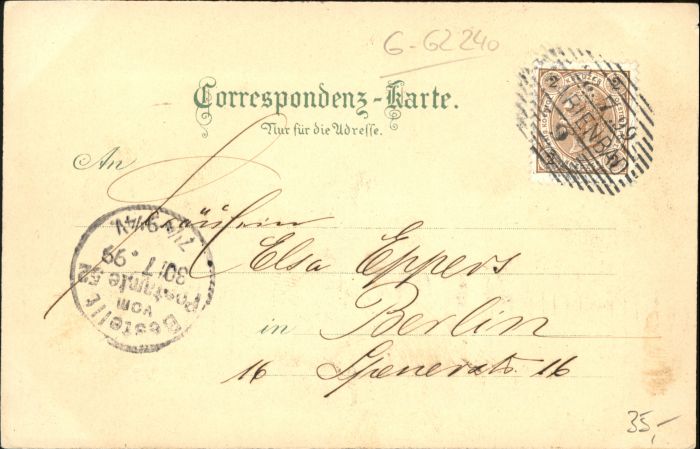 6-62240
Correspondenz-Karte.
Nur für die Adresse.
An
Fräulein
Elsa Eppers
in Berlin
16 Spenerstr. 16
Bestellt
vom
Postamte 52
30/7. 99
7¼-9¼V.
2 2
BIENBAD
35,-